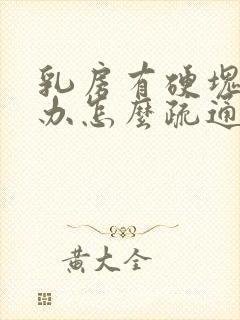 乳房有硬塊
办怎麼疏通
黄大全